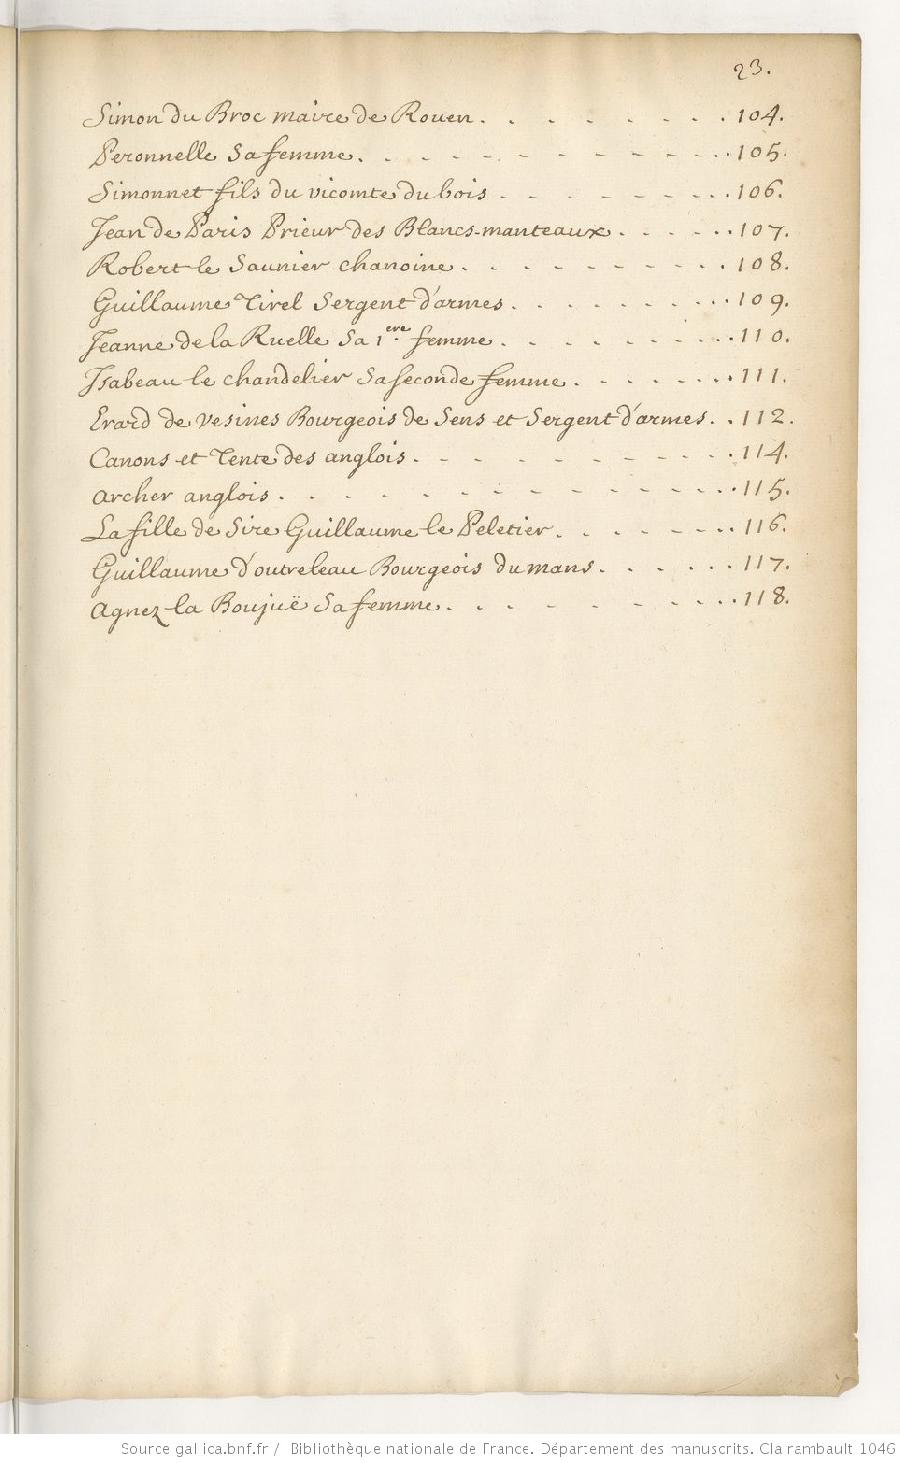 23.
Simon du Broc maire de Rouen. . . . . . . . . 104.
Peronnelle Sa femme. . . . . . . . . . . . 105.
Simonnet fils du vicomte du bois . . . . . . . . . 106.
Jean de Paris Prieur des Blancs-manteaux . . . . . . 107.
Robert le Saunier chanoine . . . . . . . . . . 108.
Guillaume Tirel Sergent d'armes . . . . . . . . . 109.
Jeanne de la Ruelle Sa 1ere. femme . . . . . . . . . 110.
Isabeau le chandelier Sa seconde femme . . . . . . . 111.
Erard de vesines Bourgeois de Sens et Sergent d'armes. . 112.
Canons et Tente des anglois . . . . . . . . . . . 114.
archer anglois . . . . . . . . . . . . . . 115.
La fille de Sire Guillaume le Peletier . . . . . . . 116.
Guillaume d'outreleau Bourgeois du mans . . . . . . 117.
agnez la Boujuë Sa femme . . . . . . . . . . 118.
Source gallica.bnf.fr / Bibliothèque nationale de France. Département des manuscrits. Clairambault 1046